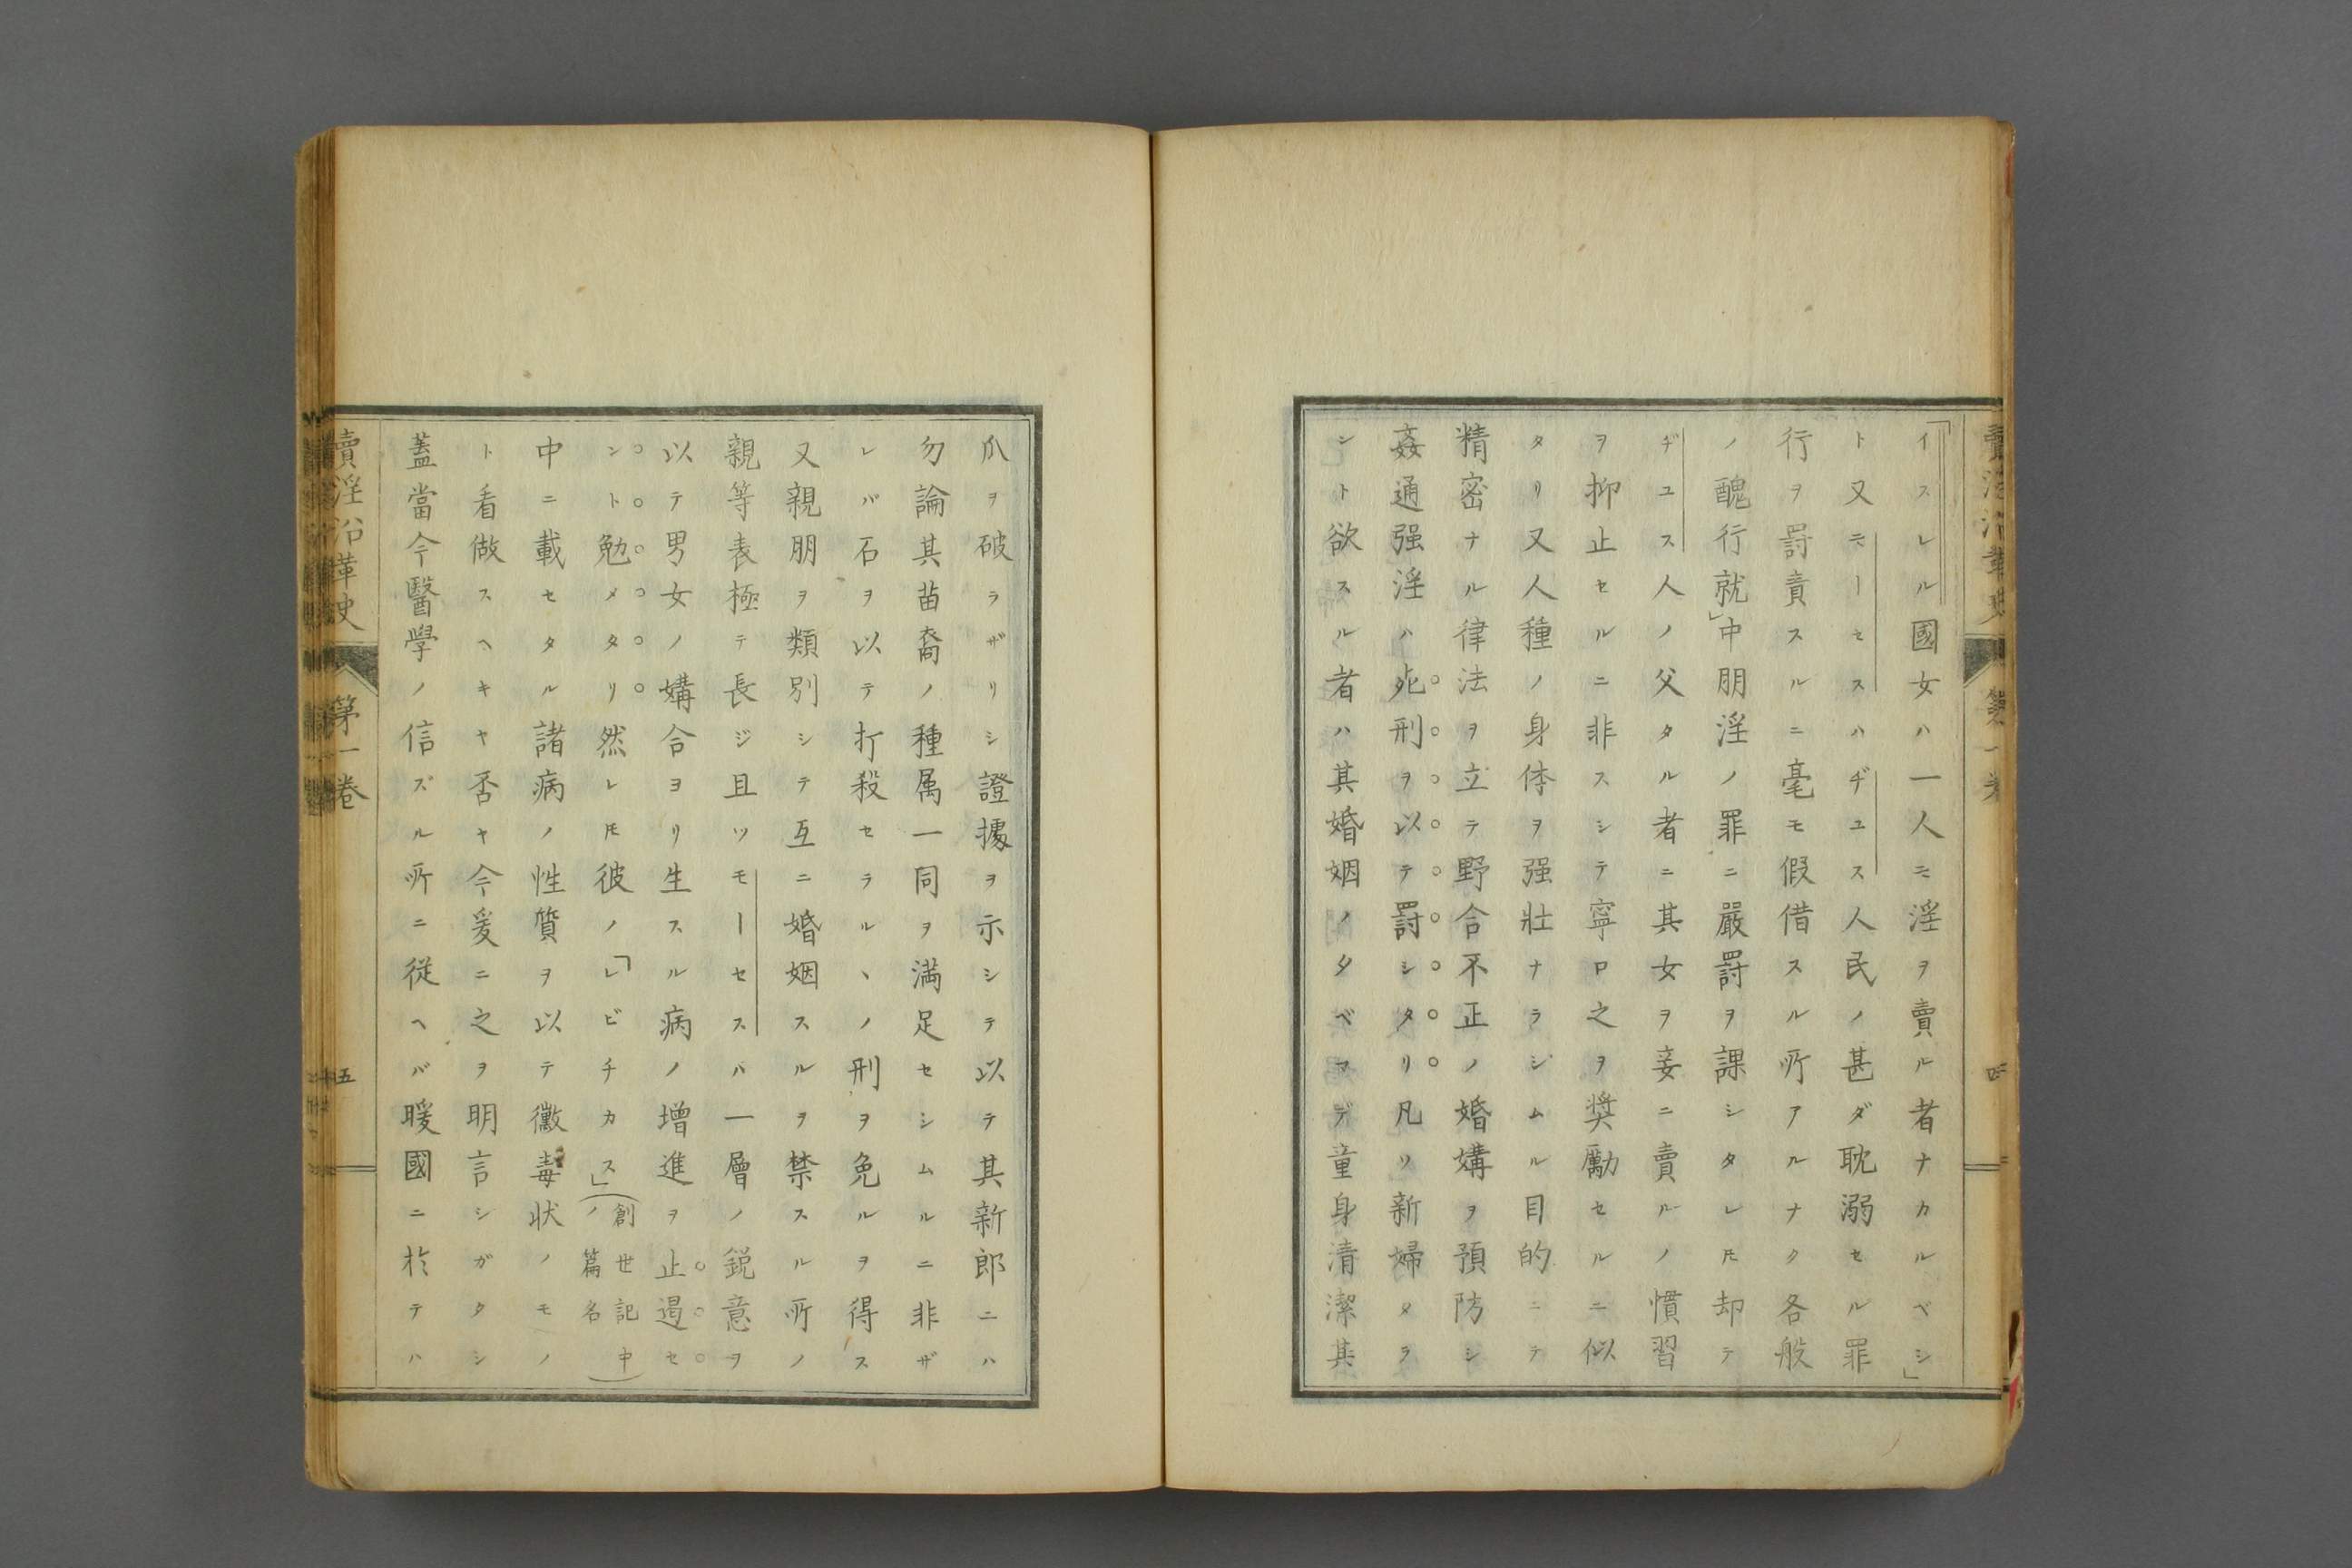 イスレル國女ハ一人モ淫ヲ賣ル者ナカルベシ」
ト又モーセスハヂユス人民ノ甚ダ耽溺セル罪
行ヲ罰責スルニ毫モ假借スル所アルナク各般
ノ醜行就」中朋淫ノ罪ニ嚴罰ヲ課シタレ𪜈却テ
ヂユス人ノ父タル者ニ其女ヲ妾ニ賣ルノ慣習
ヲ抑止セルニ非スシテ寧ロ之ヲ奨勵セルニ似
タリ又人種ノ身体ヲ强壯ナラシムル目的ニテ
精密ナル律法ヲ立テ野合不正ノ婚媾ヲ預防シ
姦通强淫ハ死刑ヲ以テ罰シタリ凡ソ新婦タラ
ント欲スル者ハ其婚姻ノ夕ベマデ童身清潔其
爪ヲ破ラザリシ證據ヲ示シテ以テ其新郎ニハ
勿論其苗裔ノ種属一同ヲ満足セシムルニ非ザ
レバ石ヲ以テ打殺セラルヽノ刑ヲ免ルヲ得ス
又親朋ヲ類別シテ互ニ婚姻スルヲ禁スル所ノ
親等表極テ長ジ且ツモーセスハ一層ノ鋭意ヲ
以テ男女ノ媾合ヨリ生スル病ノ增進ヲ止遏セ
ント勉メタリ然レ𪜈彼ノ「レビチカス」(創世記中ノ篇名)
中ニ載セタル諸病ノ性質ヲ以テ黴毒状ノモノ
ト看做スヘキヤ否ヤ今爰ニ之ヲ明言シガタシ
蓋當今醫學ノ信ズル所ニ従ヘバ暖國ニ於テハ
賣淫沿革史 第一卷 五